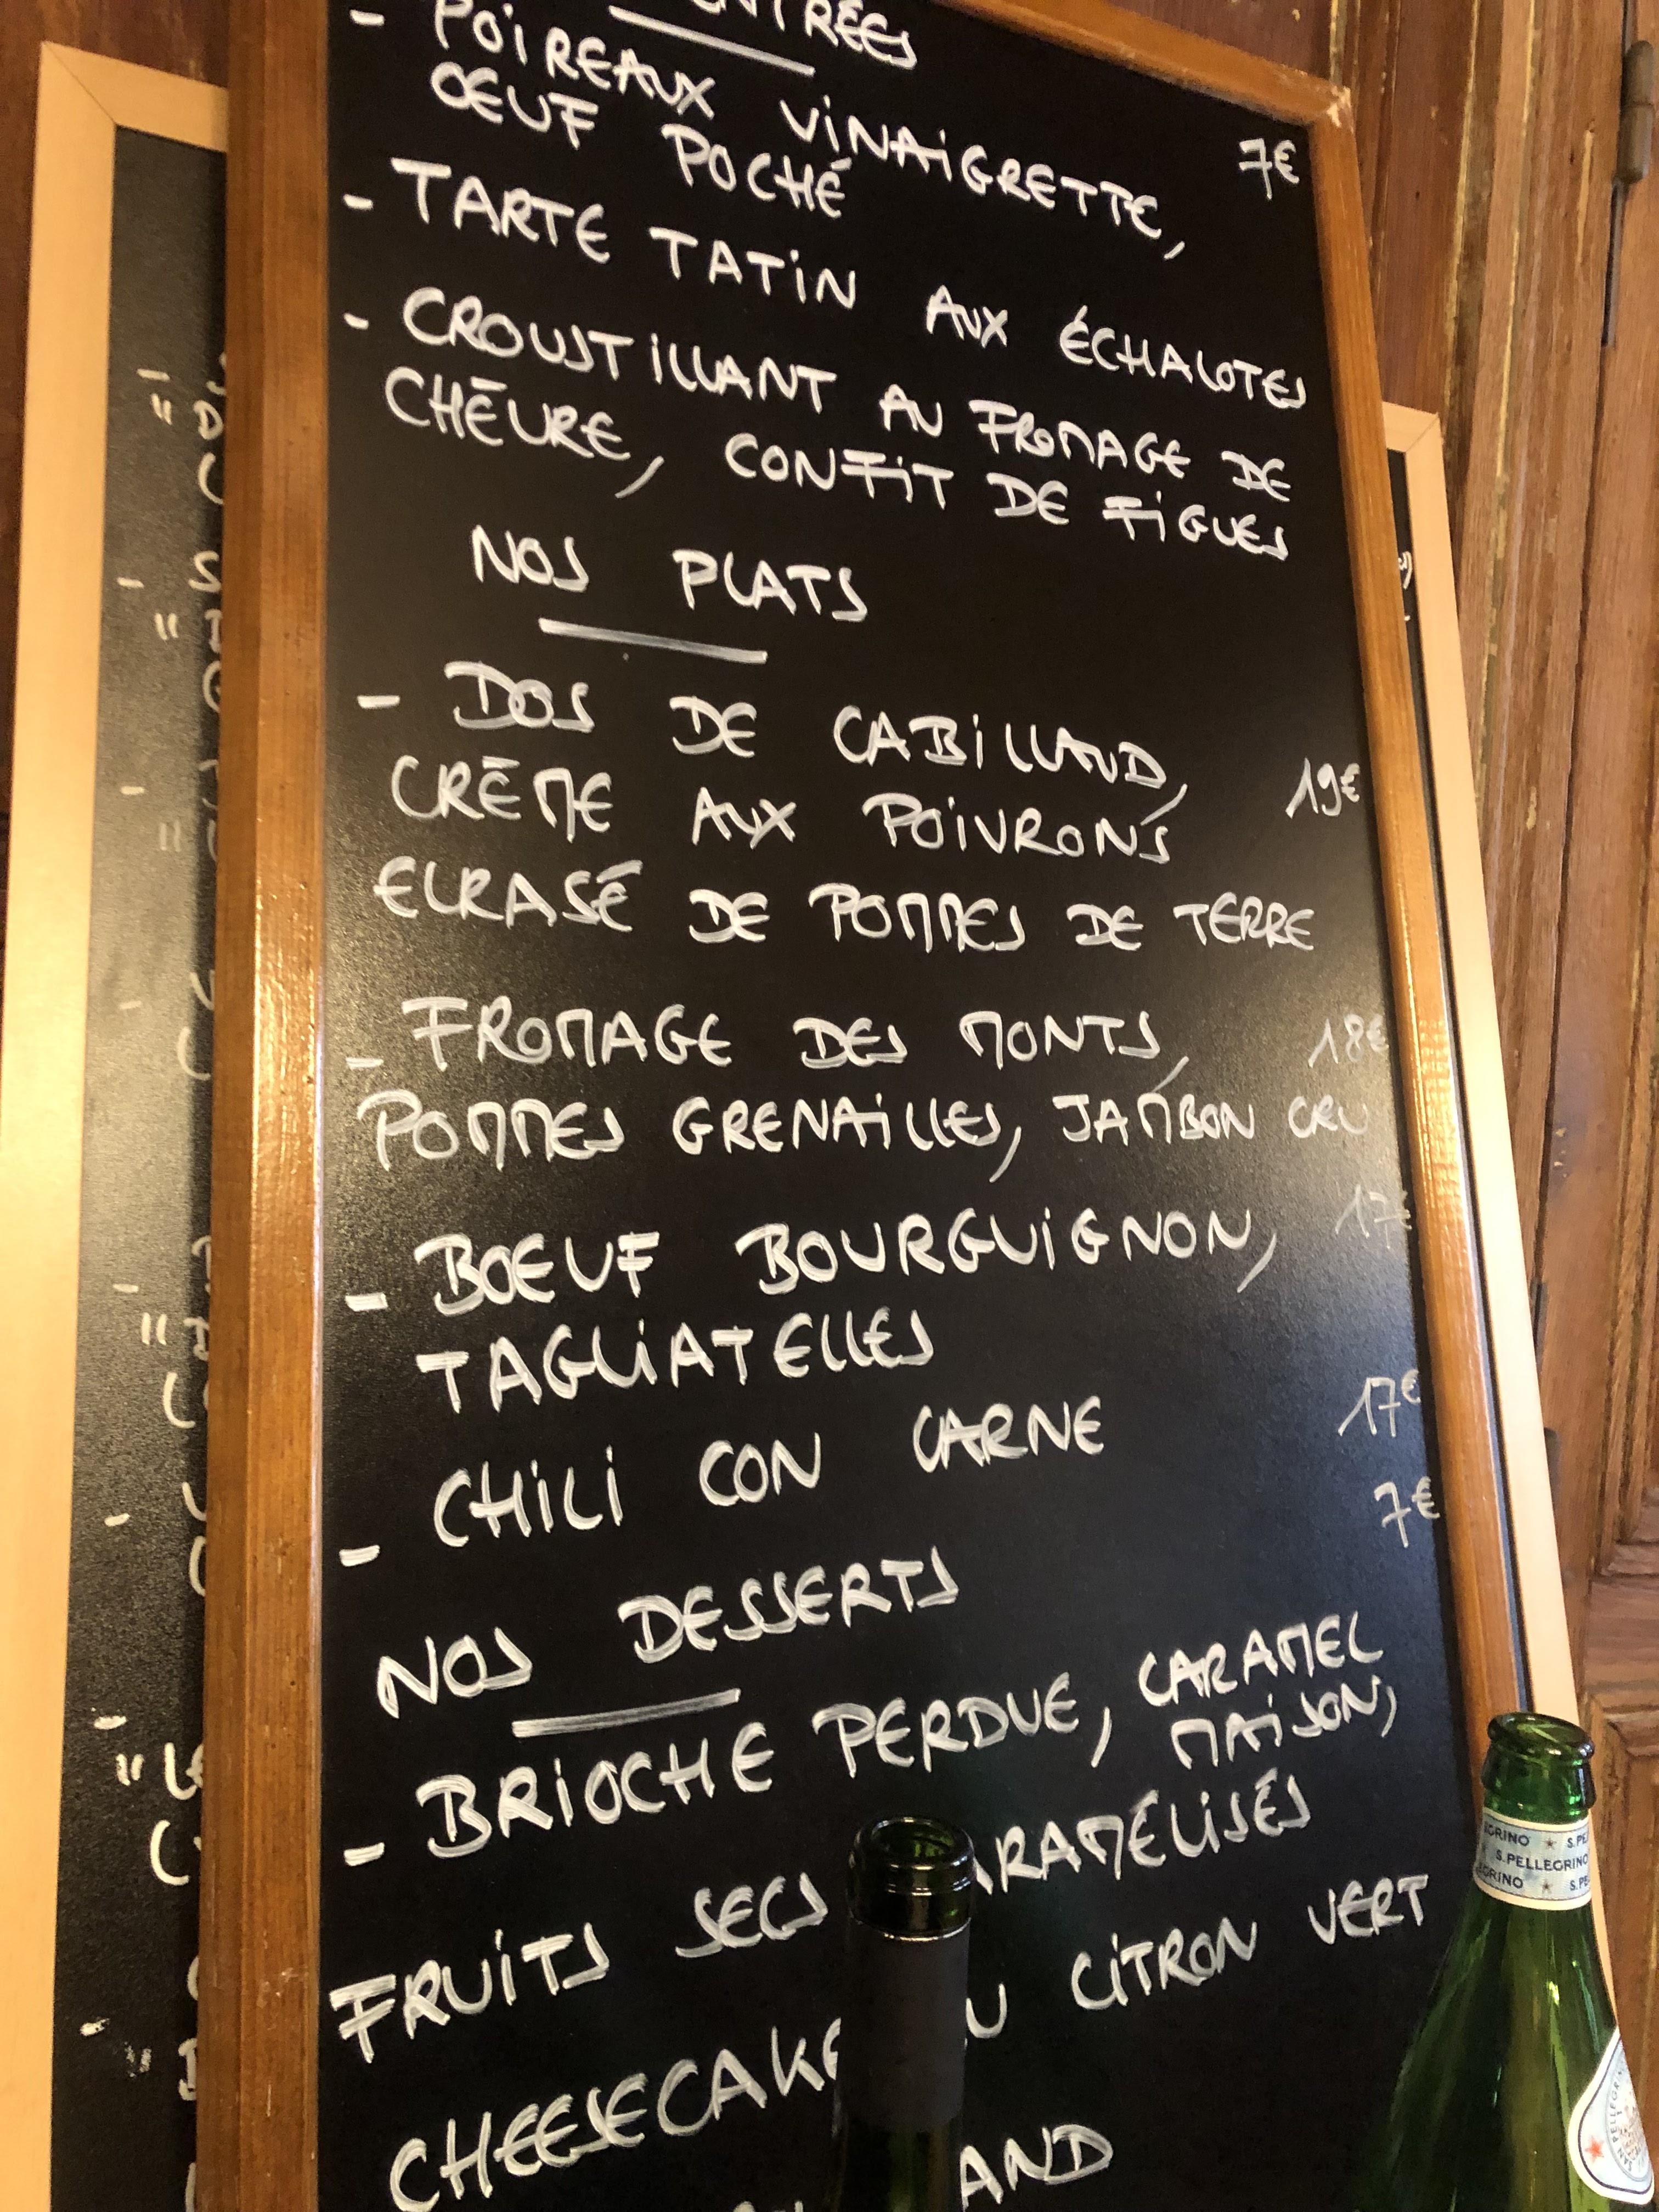 - POIREAUX VINAIGRETTE, 7€
ŒUF POCHÉ
- TARTE TATIN AUX ÉCHALOTES
- CROUSTILLANT AU FROMAGE DE
CHÈVRE, CONFIT DE FIGUES
NOS PLATS
- DOS DE CABILLAUD, 19€
CRÈME AUX POIVRONS
ECRASÉ DE POMMES DE TERRE
- FROMAGE DES MONTS, 18€
POMMES GRENAILLES, JAMBON CRU
- BOEUF BOURGUIGNON, 17€
TAGLIATELLES
- CHILI CON CARNE 17€
NOS DESSERTS 7€
- BRIOCHE PERDUE, CARAMEL
MAISON,
FRUITS SECS
CHEESECAKE CITRON VERT
S.PELLEGRINO